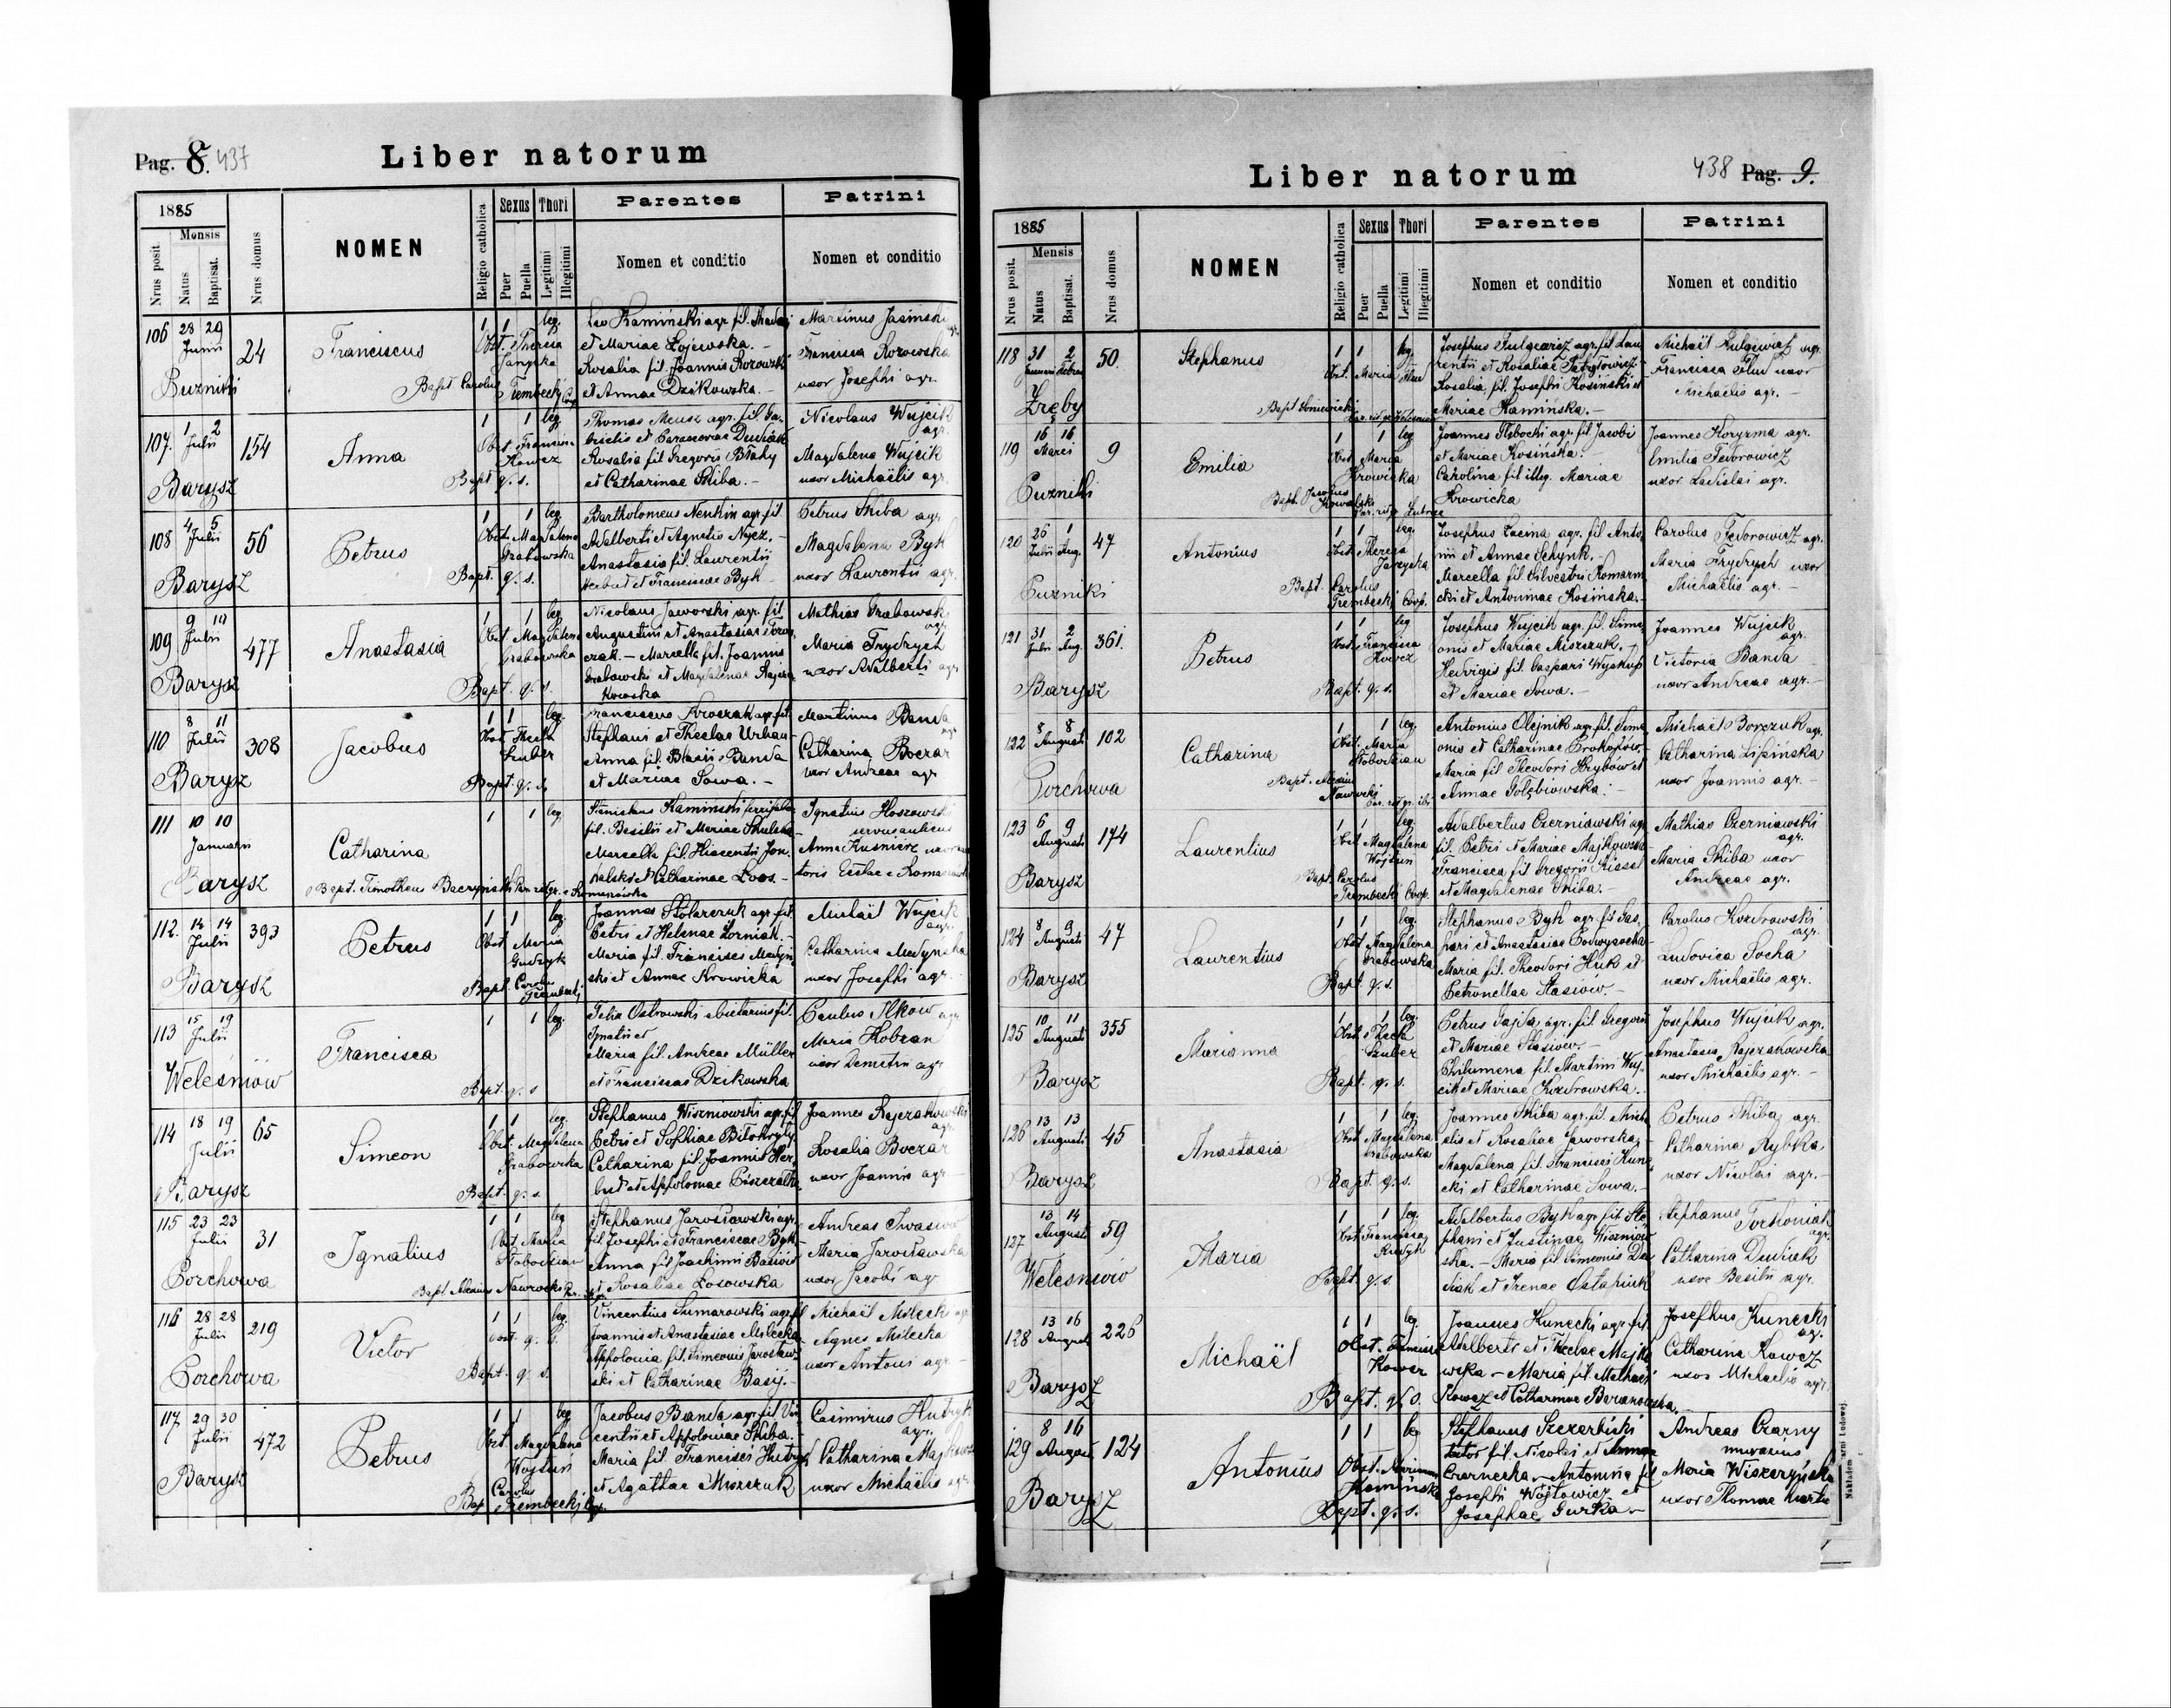 Pag. 8. 437
Liber natorum
1885
Mensis
Nrus posit.
Natus
Baptisat.
Nrus domus
NOMEN
Religio catholica
Sexus
Puer
Puella
Thori
Legitimi
Illegitimi
Parentes
Nomen et conditio
Patrini
Nomen et conditio
106 28 29 Junii 24
Puzniki
Franciscus
1 1 leg.
Obst. Theresia
Bapt. Carolus Trembecki
Leo Kamiński agr. fil.
et Mariae Łojewska. -
Rosalia fil. Joannis
et Annae Dzikowska. -
Martinus Jasiński
Francisca
uxor Josephi agr.
107. 1 2 Julii 154
Barysz
Anna
1 1 leg.
Obst. Francisca
Kowcz
Bapt. q. s.
Thomas Meusz agr. fil. Ga-
brielis et Parascevae Dudiak
Rosalia fil. Gregorii Błahy
et Catharinae Skiba. -
Nicolaus Wujcik
agr.
Magdalena Wujcik
uxor Michaëlis agr.
108 4 5 Julii 56
Barysz
Petrus
1 1 leg.
Obst. Magdalena
Grabowska
Bapt. q. s.
Bartholomeus agr. fil.
Adalberti et Agnetis Nycz. -
Anastasia fil. Laurentii
Herbut et Franciscae Byk -
Petrus Skiba agr.
Magdalena Byk
uxor Laurentii agr.
109 9 10 Julii 477
Barysz
Anastasia
1 1 leg.
Obst. Magdalena
Grabowska
Bapt. q. s.
Nicolaus Jaworski agr. fil.
Augustini et Anastasiae
czak. - Marcella fil. Joannis
Grabowski et Magdalenae
Mathias Grabowski
agr.
Maria Frydrych
uxor Adalberti agr.
110 8 11 Julii 308
Barysz
Jacobus
1 1 leg.
Obst. Thecla
Szuber
Bapt. q. s.
Franciscus agr. fil.
Stephani et Theclae Urban-
Anna fil. Blasii Banda
et Mariae Sowa. -
Martinus Banda
agr.
Catharina Boczar
uxor Andreae agr.
111 10 10 Januarii
Barysz
Catharina
1 1 leg.
Bapt. Timotheus
Stanislaus Kamiński
fil. Basilii et Mariae
Marcella fil. Hiacenti
et Catharinae Loos. -
Ignatius Hoszowski
Anna Kusnierz
112. 14 14 Julii 393
Barysz
Petrus
1 1 leg.
Obst. Maria
Bapt. Carolus
Trembecki
Joannes Stolarczuk agr. fil.
Petri et Helenae Zorniak. -
Maria fil. Francisci Medyń-
ski et Annae Krowicka
Michaël Wujcik
agr.
Catharina Medyńska
uxor Josephi agr.
113 15 19 Julii
Weleśniów
Francisca
1 1 leg.
Bapt. q. s.
Felix Ostrowski fil.
Ignatii et
Maria fil. Andreae Müller
et Franciscae Dzikowska
Paulus Ilkow agr.
Maria
uxor Demetri agr.
114 18 19 Julii 65
Barysz
Simeon
1 1 leg.
Obst. Magdalena
Grabowska
Bapt. q. s.
Stephanus Wiszniowski agr. fil.
Petri et Sophiae
Catharina fil. Joannis Her-
but et Appoloniae
Joannes
agr.
Rosalia Boczar
uxor Joannis agr.
115 23 23 Julii 31
Porchowa
Ignatius
1 1 leg.
Obst. Maria
Bapt. Nawrocki
Stephanus Jarosławski agr.
fil. Josephi et Franciscae Byk. -
Anna fil. Joachimi
et Rosaliae Łosowska
Andreas Iwasiów
Maria Jarosławska
uxor Jacobi agr.
116 28 28 Julii 219
Porchowa
Victor
1 1 leg.
Obst. q. s.
Bapt. q. s.
Vincentius Sumarowski agr. fil.
Joannis et Anastasiae Milecka
Appolonia fil. Simeonis Jarosław-
ski et Catharinae Basij. -
Michaël Milecki agr.
Agnes Milecka
uxor Antoni agr.
117. 29 30 Julii 472
Barysz
Petrus
1 1 leg.
Obst. Magdalena
Wojtun
Bapt. Carolus
Trembecki
Jacobus Banda agr. fil. Vin-
centii et Appoloniae Skiba. -
Maria fil. Francisci Hutryk
et Agathae Miszczuk
Casimirus Hutryk
agr.
Catharina
uxor Michaëlis agr.
438 Pag. 9.
Liber natorum
1885
Mensis
Nrus posit.
Natus
Baptisat.
Nrus domus
NOMEN
Religio catholica
Sexus
Puer
Puella
Thori
Legitimi
Illegitimi
Parentes
Nomen et conditio
Patrini
Nomen et conditio
118 31 2 50.
Zręby
Stephanus
1 1 leg.
Obst. Maria
Josephus agr. fil. Lau-
rentii et Rosaliae
Rosalia fil. Josephi Kosiński et
Mariae Kamińska. -
Michaël agr.
Francisca uxor
Michaëlis agr. -
119 16 16 Marci 9
Puzniki
Emilia
1 1 leg.
Obst. Maria
Krowicka
Bapt. Jacobus
Kowalski
Joannes agr. fil. Jacobi
et Mariae Kosińska. -
Carolina fil. illeg. Mariae
Krowicka
Joannes agr.
Emilia Fedorowicz
uxor Ladislai agr.
120 26 1 Julii Aug. 47
Puzniki
Antonius
1 1 leg.
Obst. Theresa
Bapt. Carolus
Trembecki Coop.
Josephus Łacina agr. fil. Anto-
nii et Annae
Marcella fil. Silvestri
cki et Antoninae Kosińska. -
Carolus Fedorowicz agr.
Maria Frydrych uxor
Michaëlis agr. -
121 31 2 Julii Aug. 361.
Barysz
Petrus
1 1 leg.
Obst. Francisca
Kowcz
Bapt. q. s.
Josephus Wujcik agr. fil. Sime-
onis et Mariae Miszczuk. -
Hedvigis fil. Caspari Wyskup
et Mariae Sowa. -
Joannes Wujcik
agr.
Victoria Banda
uxor Andreae agr. -
122 8 8 Augusti 102
Porchowa
Catharina
1 1 leg.
Obst. Maria
Bapt.
Nawrocki
Antonius Olejnik agr. fil. Sime-
onis et Catharinae Prokopów. -
Maria fil. Theodori Hrybów et
Annae Gołębiowska. -
Michaël agr.
Catharina Lipińska
uxor Joannis agr. -
123 6 9 Augusti 174
Barysz
Laurentius
1 1 leg.
Obst. Magdalena
Wojtun
Bapt. Carolus
Trembecki Coop.
Adalbertus Czerniawski agr.
fil. Petri et Mariae Majkowska
Francisca fil. Gregorii Kissel
et Magdalenae Skiba. -
Mathias Czerniawski
agr.
Maria Skiba uxor
Andreae agr.
124 8 9 Augusti 47
Barysz
Laurentius
1 1 leg.
Obst. Magdalena
Grabowska
Bapt. q. s.
Stephanus Byk agr. fil. Gas-
pari et Anastasiae Podwysocka
Maria fil. Theodori Huk et
Petronellae Stasiow. -
Carolus Kozdrowski
agr.
Ludovica Socha
uxor Michaëlis agr.
125 10 11 Augusti 355
Barysz
Marianna
1 1 leg.
Obst. Thecla
Szuber
Bapt. q. s.
Petrus Gajda agr. fil. Gregorii
et Mariae Stasiów. -
Philumena fil. Martini Wuj-
cik et Mariae Kozdrowska. -
Josephus Wujcik agr.
Anastasia
uxor Michaëlis agr. -
126 13 13 Augusti 45
Barysz
Anastasia
1 1 leg.
Obst. Magdalena
Grabowska
Bapt. q. s.
Joannes Skiba agr. fil. Micha-
ëlis et Rosaliae Jaworska. -
Magdalena fil. Francisci Kune-
cki et Catharinae Sowa. -
Petrus Skiba agr.
Catharina Rybka
uxor Nicolai agr. -
127 13 14 Augusti 59
Weleśniów
Maria
1 1 leg.
Obst. Francisca
Bapt. q. s.
Adalbertus Byk agr. fil. Ste-
phani et Justinae Wiszniow-
ska. - Maria fil. Simeonis Du-
diak et Irenae Ostapiuk
Stephanus
agr.
Catharina Dudiak
uxor Basilii agr.
128 13 16 Augusti 226
Barysz
Michaël
1 1 leg.
Obst. Francisca
Kowcz
Bapt. q. s.
Joannes Kunecki agr. fil.
Adalberti et Theclae Majko-
wska - Maria fil. Mathaei
Kowcz et Catharinae Baranowska.
Josephus Kunecki
agr.
Catharina Kowcz
uxor Michaelis agr.
129 8 16 Augusti 124
Barysz
Antonius
1 1 leg
Obst. Marianna
Kamińska
Bapt. q. s.
Stephanus Szczerbiński
sutor fil. Nicolai et Annae
Czarnecka - Antonina fil.
Josephi Wójtowicz et
Josephae Gurka -
Andreas Czarny
murarius
Maria
uxor Thomae
Nakładem